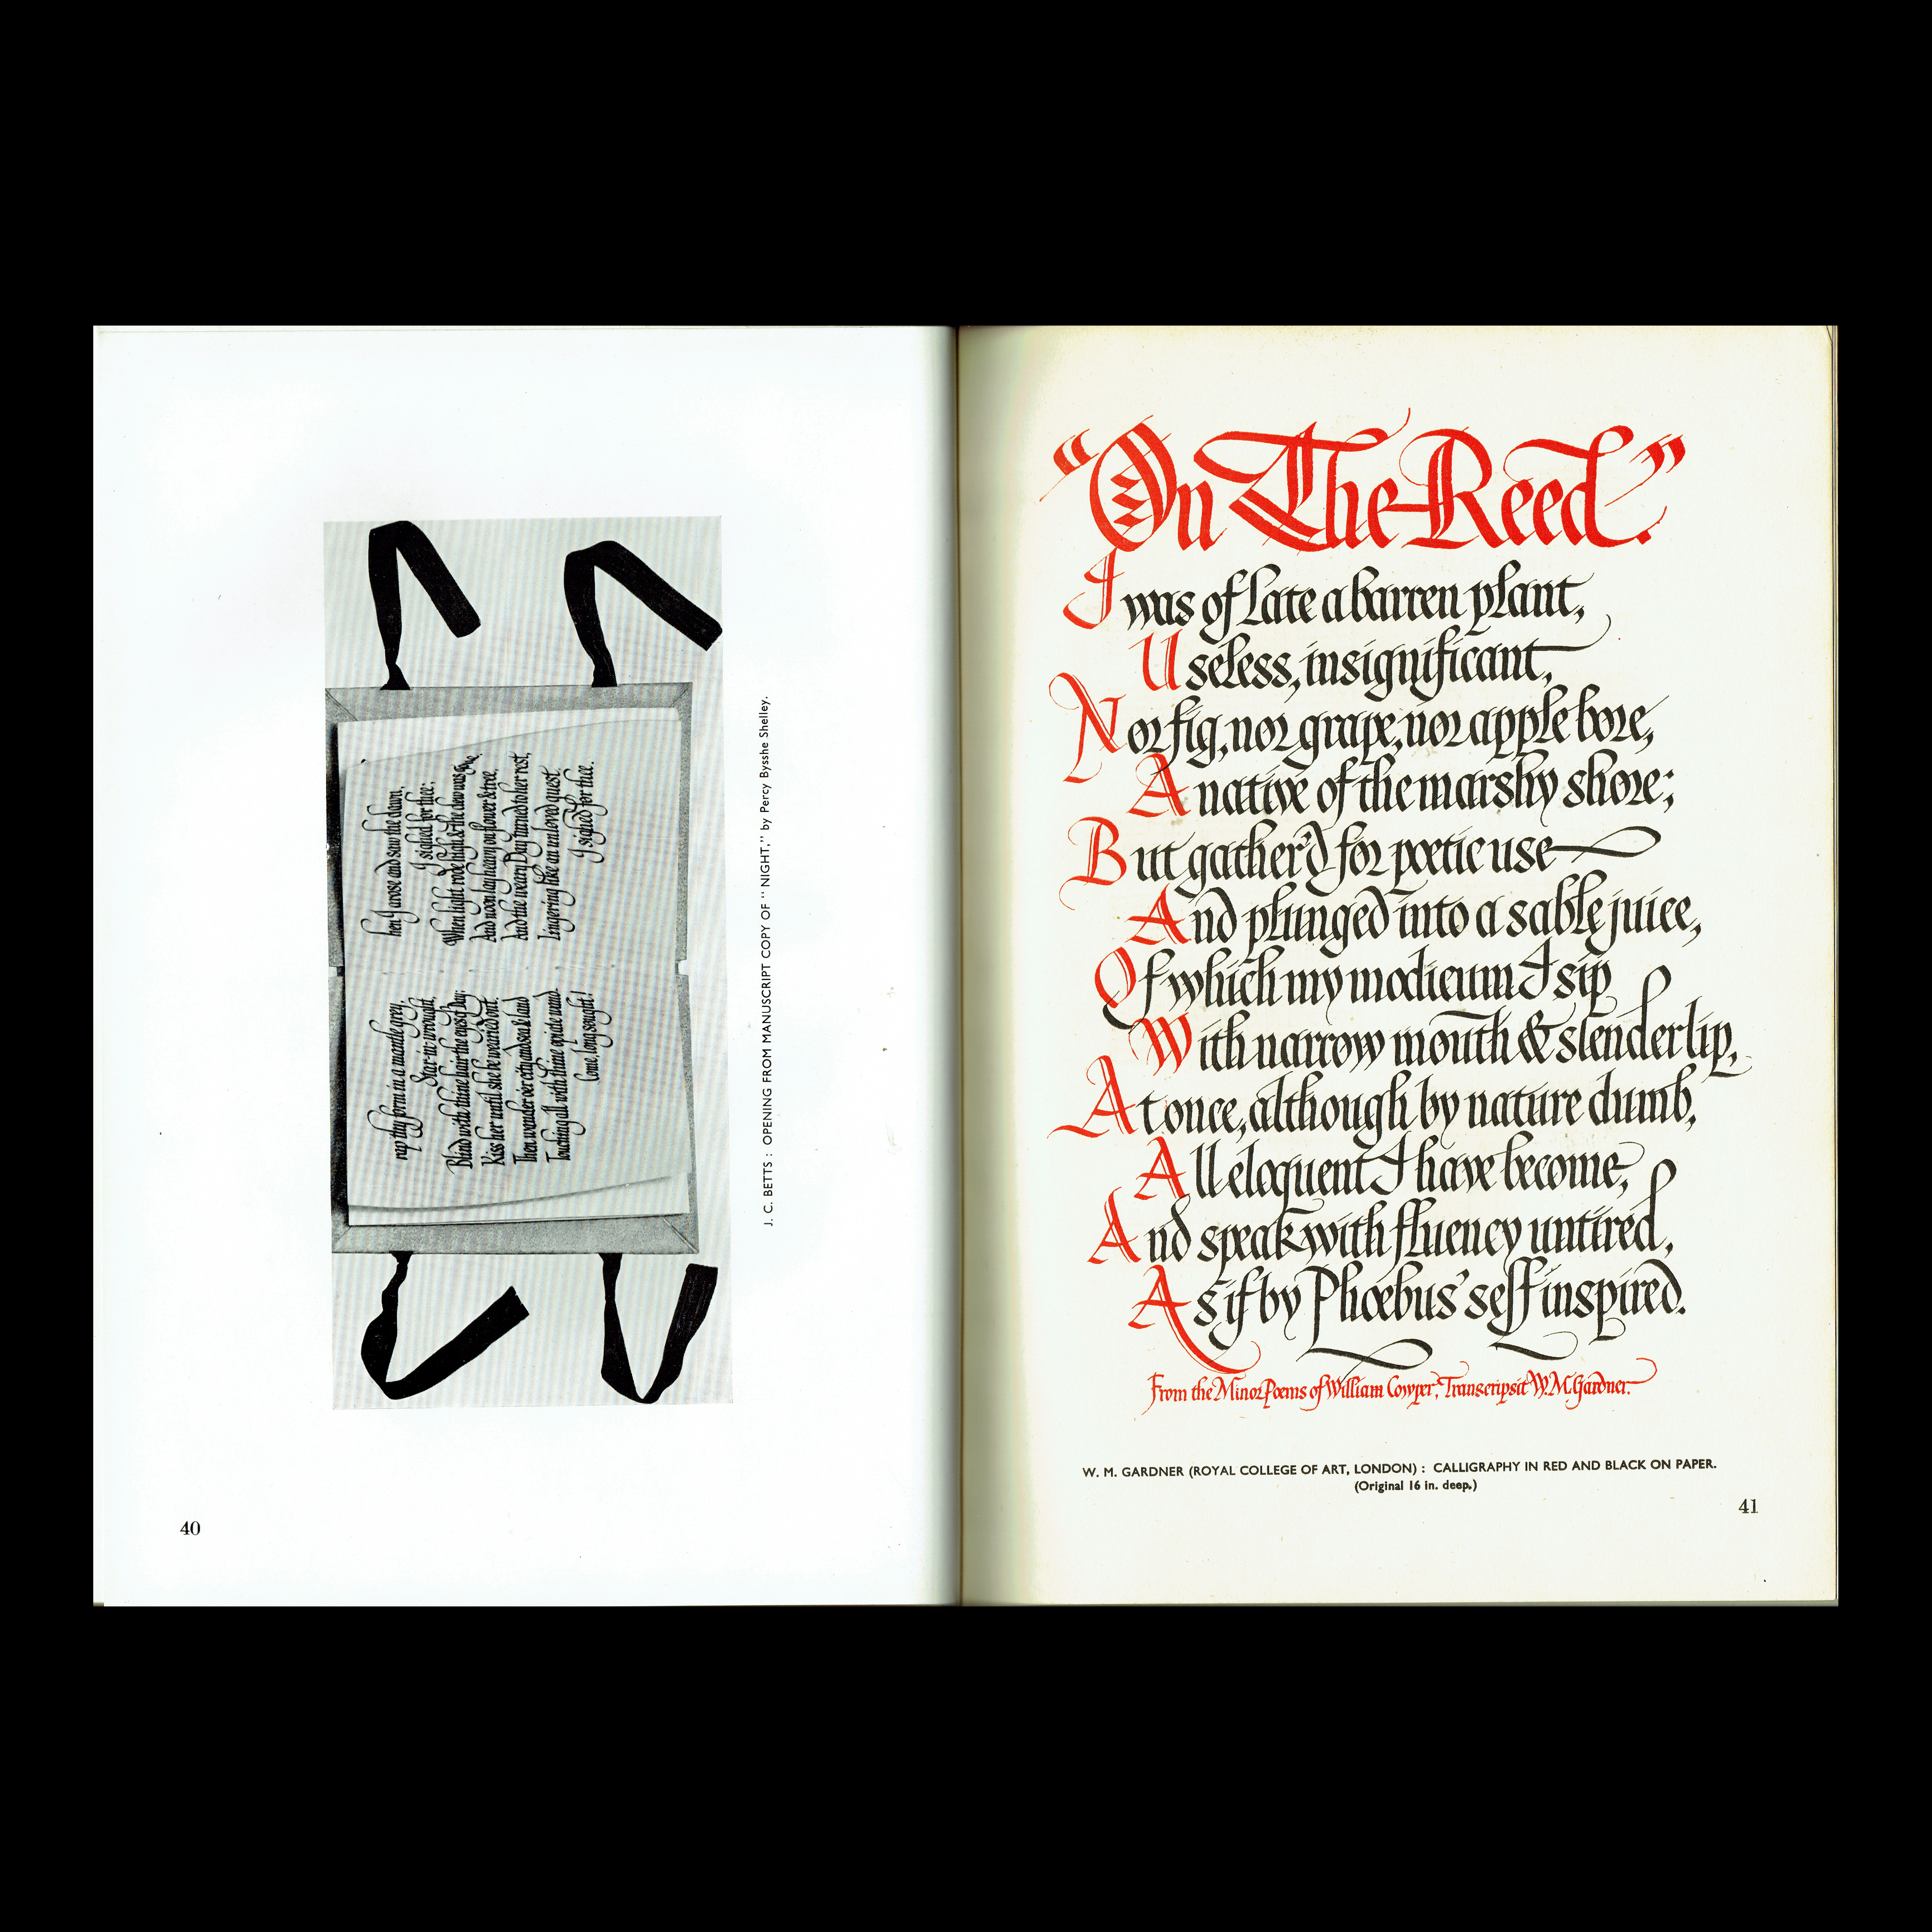 rap thy form in a mantle grey,
Star-in-wrought
Blind with thine hair the eyes of Day;
Kiss her until she be wearied out.
Then wander o'er city and sea & land
Touching all with thine opiate wand-
Come, long sought!
hen I arose and saw the dawn,
I sighed for thee;
When light rode high & the dew was gone,
And noon lay heavy on flower & tree,
And the weary Day turned to her rest,
Lingering like an unloved quest.
I sighed for thee.
J. C. BETTS : OPENING FROM MANUSCRIPT COPY OF "NIGHT," by Percy Bysshe Shelley.
40
"On The Reed."
I was of late a barren plant,
Useless, insignificant,
Nor fig, nor grape, nor apple bore,
A native of the marshy shore;
But gather'd for poetic use
And plunged into a sable juice,
Of which my modicum I sip
With narrow mouth & slender lip,
At once, although by nature dumb,
All eloquent I have become,
And speak with fluency untired,
As if by Phœbus' self inspired.
From the Minor Poems of William Cowper; Transcripsit W.M.Gardner.
W. M. GARDNER (ROYAL COLLEGE OF ART, LONDON) : CALLIGRAPHY IN RED AND BLACK ON PAPER.
(Original 16 in. deep.)
41